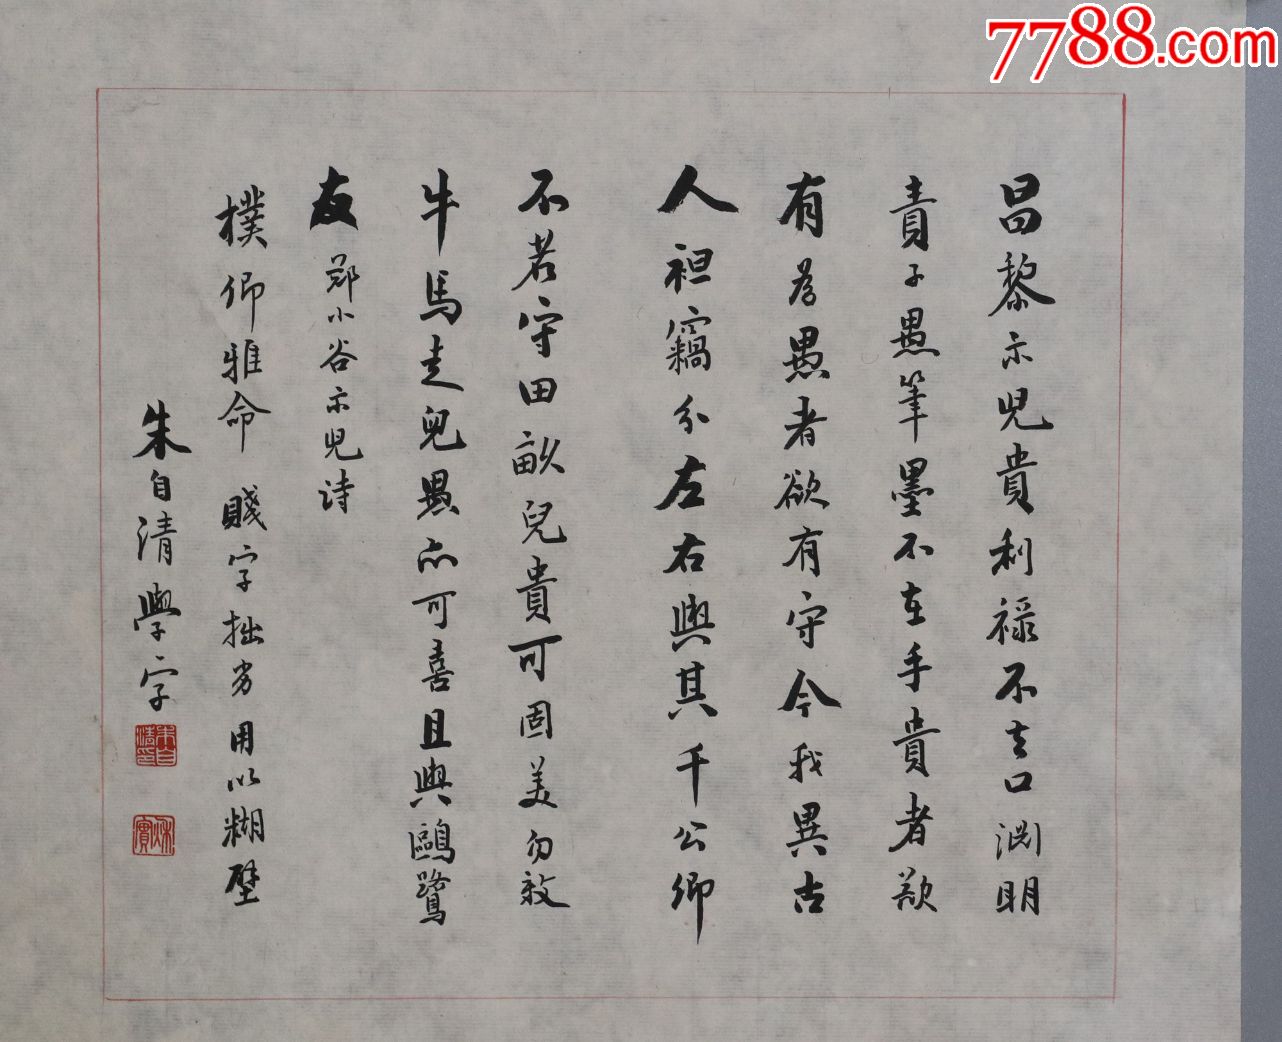 7788.com
昌黎示兒貴利祿不去口淵明
責子愚筆墨不在手貴者欲
有爲愚者欲有守今我異古
人袒竊分左右與其千公卿
不若守田畝兒貴可固美勿效
牛馬走兒愚亦可喜且與鷗鷺
友 鄭小谷示兒诗
樸卿雅命 賤字拙劣用以糊壁
朱自清學字
朱自清印
秋實